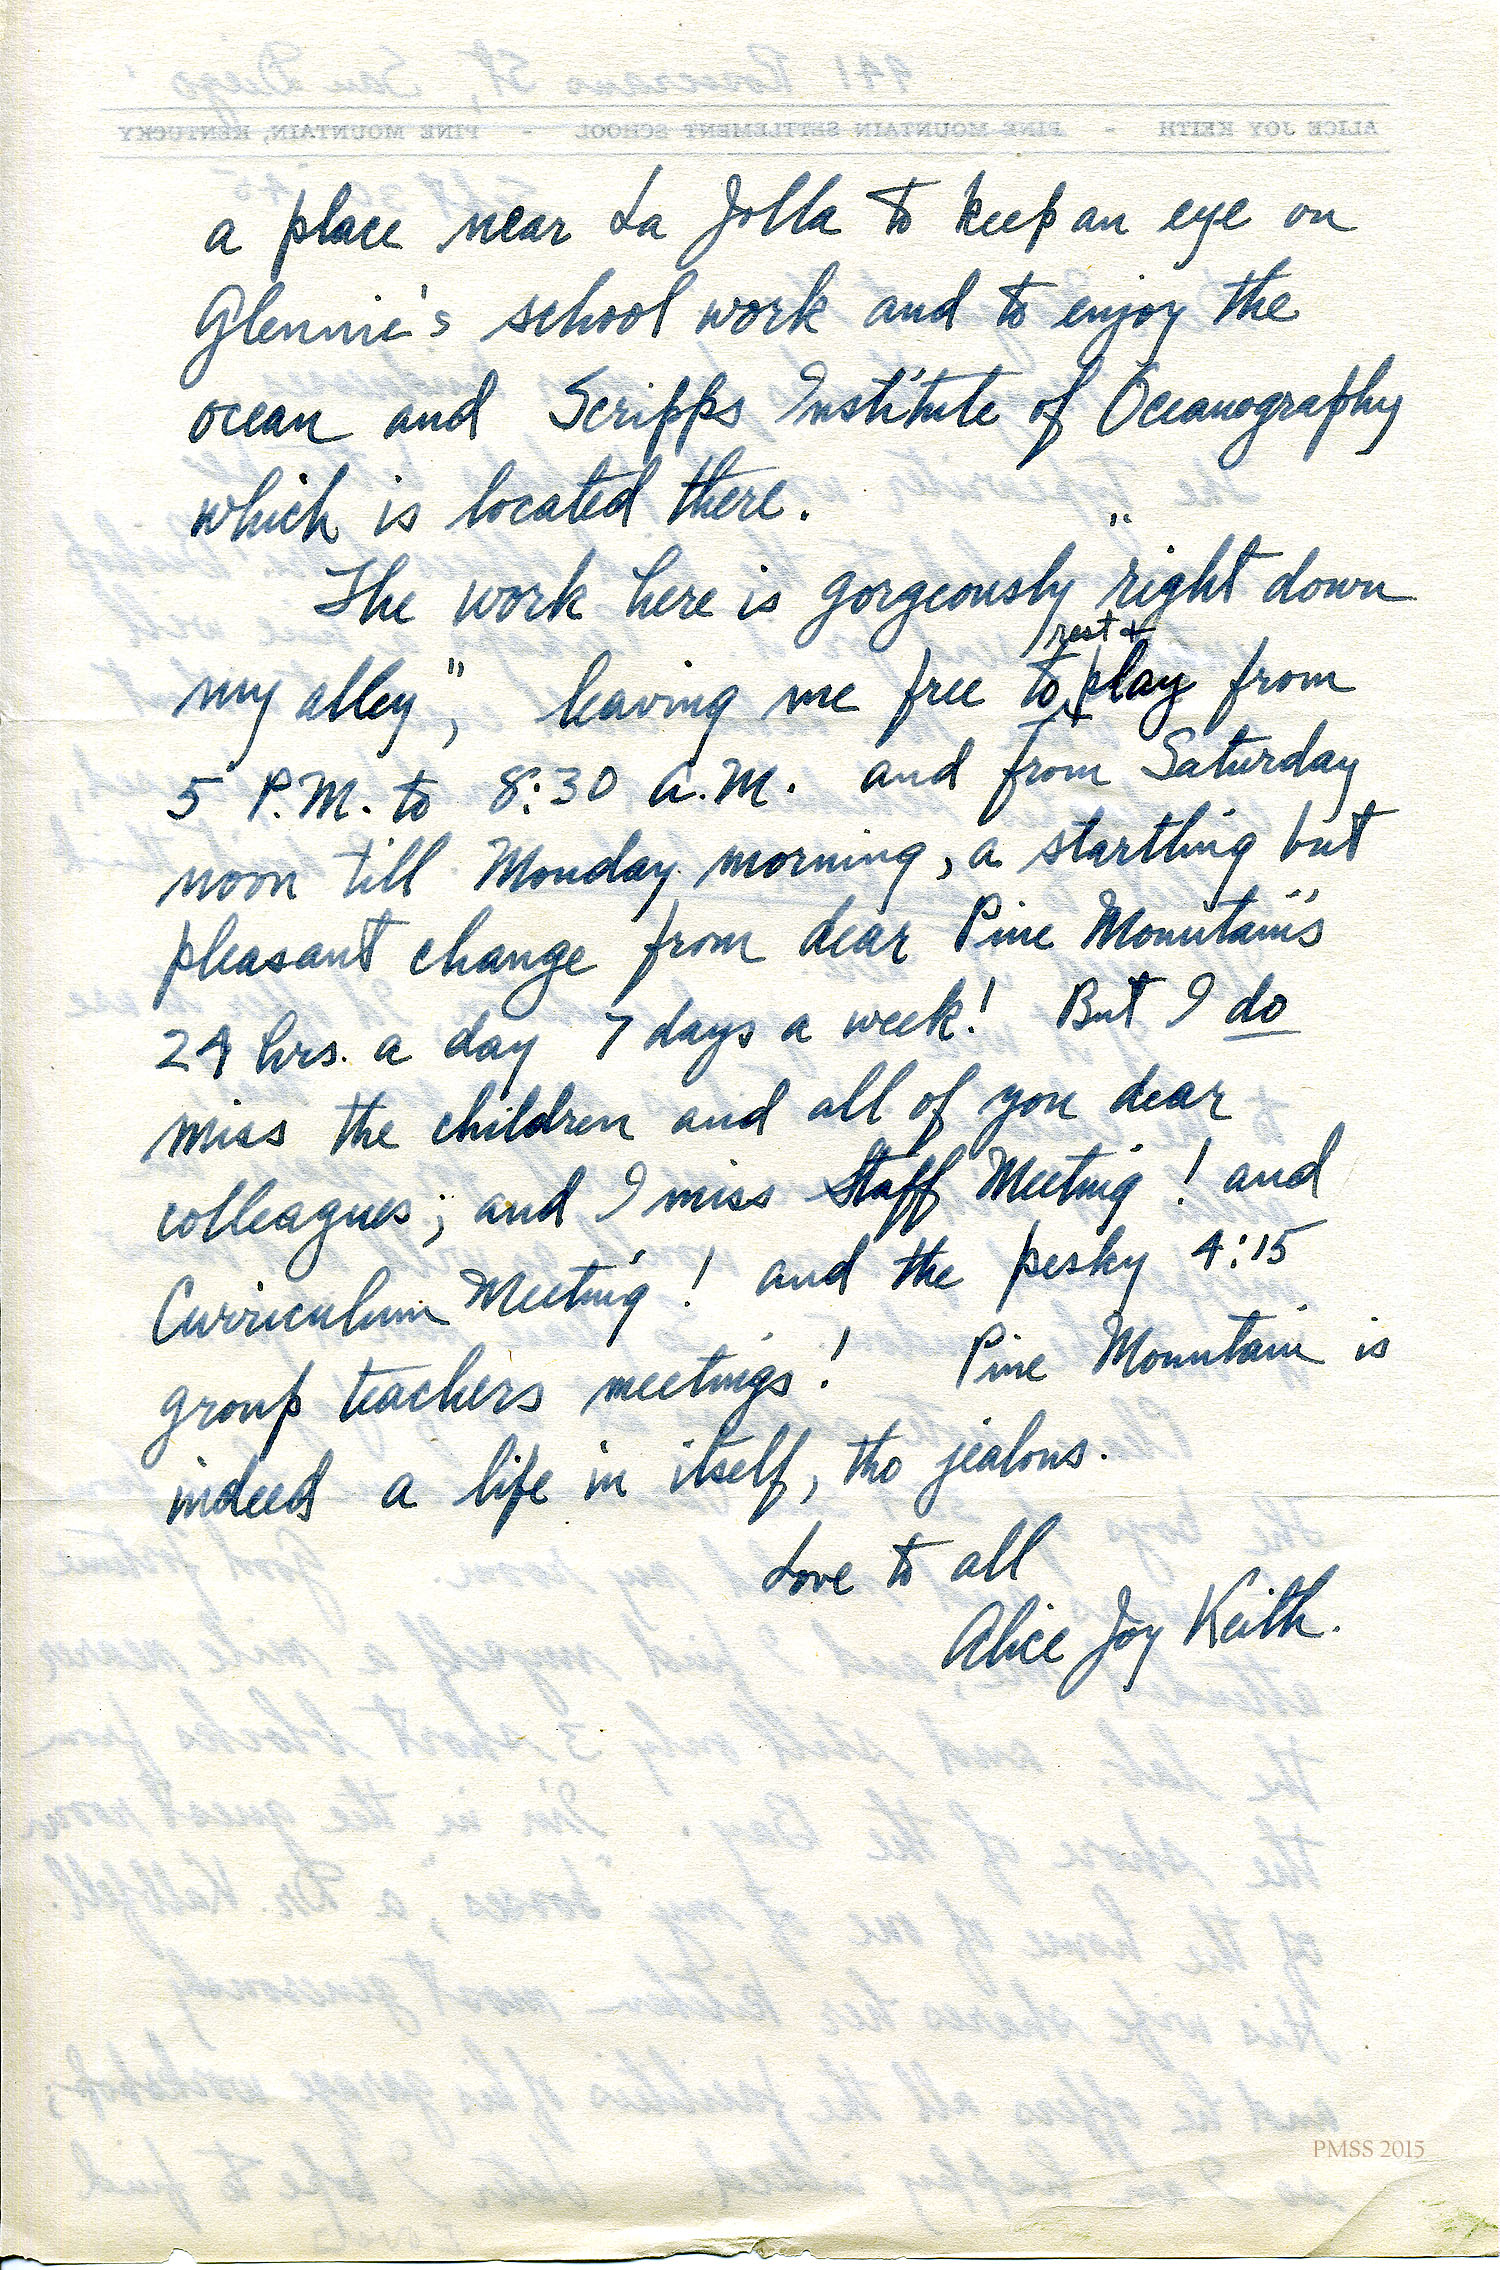 a place near La Jolla to keep an eye on
Glennie's school work and to enjoy the
ocean and Scripps Institute of Oceanography
which is located there.
The work here is gorgeously "right down
my alley", leaving me free to rest + play from
5 P.M. to 8:30 A.M. and from Saturday
noon till Monday morning, a startling but
pleasant change from dear Pine Mountain's
24 hrs. a day 7 days a week! But I do
miss the children and all of you dear
colleagues; and I miss Staff Meeting! and
Curriculum Meeting! and the pesky 4:15
group teachers meetings! Pine Mountain is
indeed a life in itself, tho jealous.
Love to all
Alice Joy Keith.
PMSS 2015